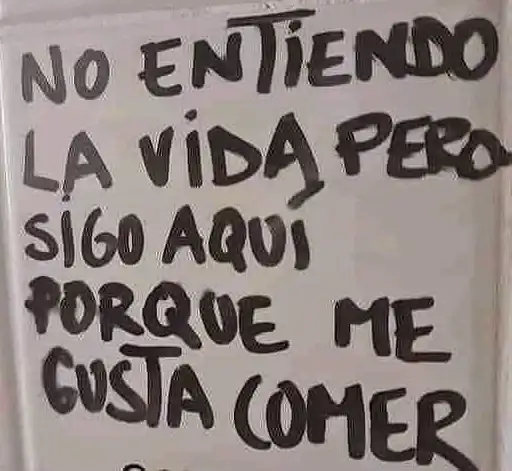 NO ENTIENDO
LA VIDA, PERO
SIGO AQUÍ
PORQUE ME
GUSTA COMER